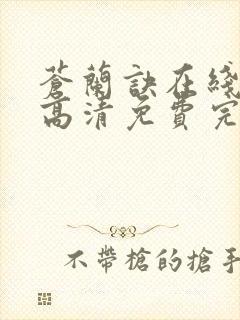 蒼蘭訣在綫
高清免費完
不帶槍的搶手